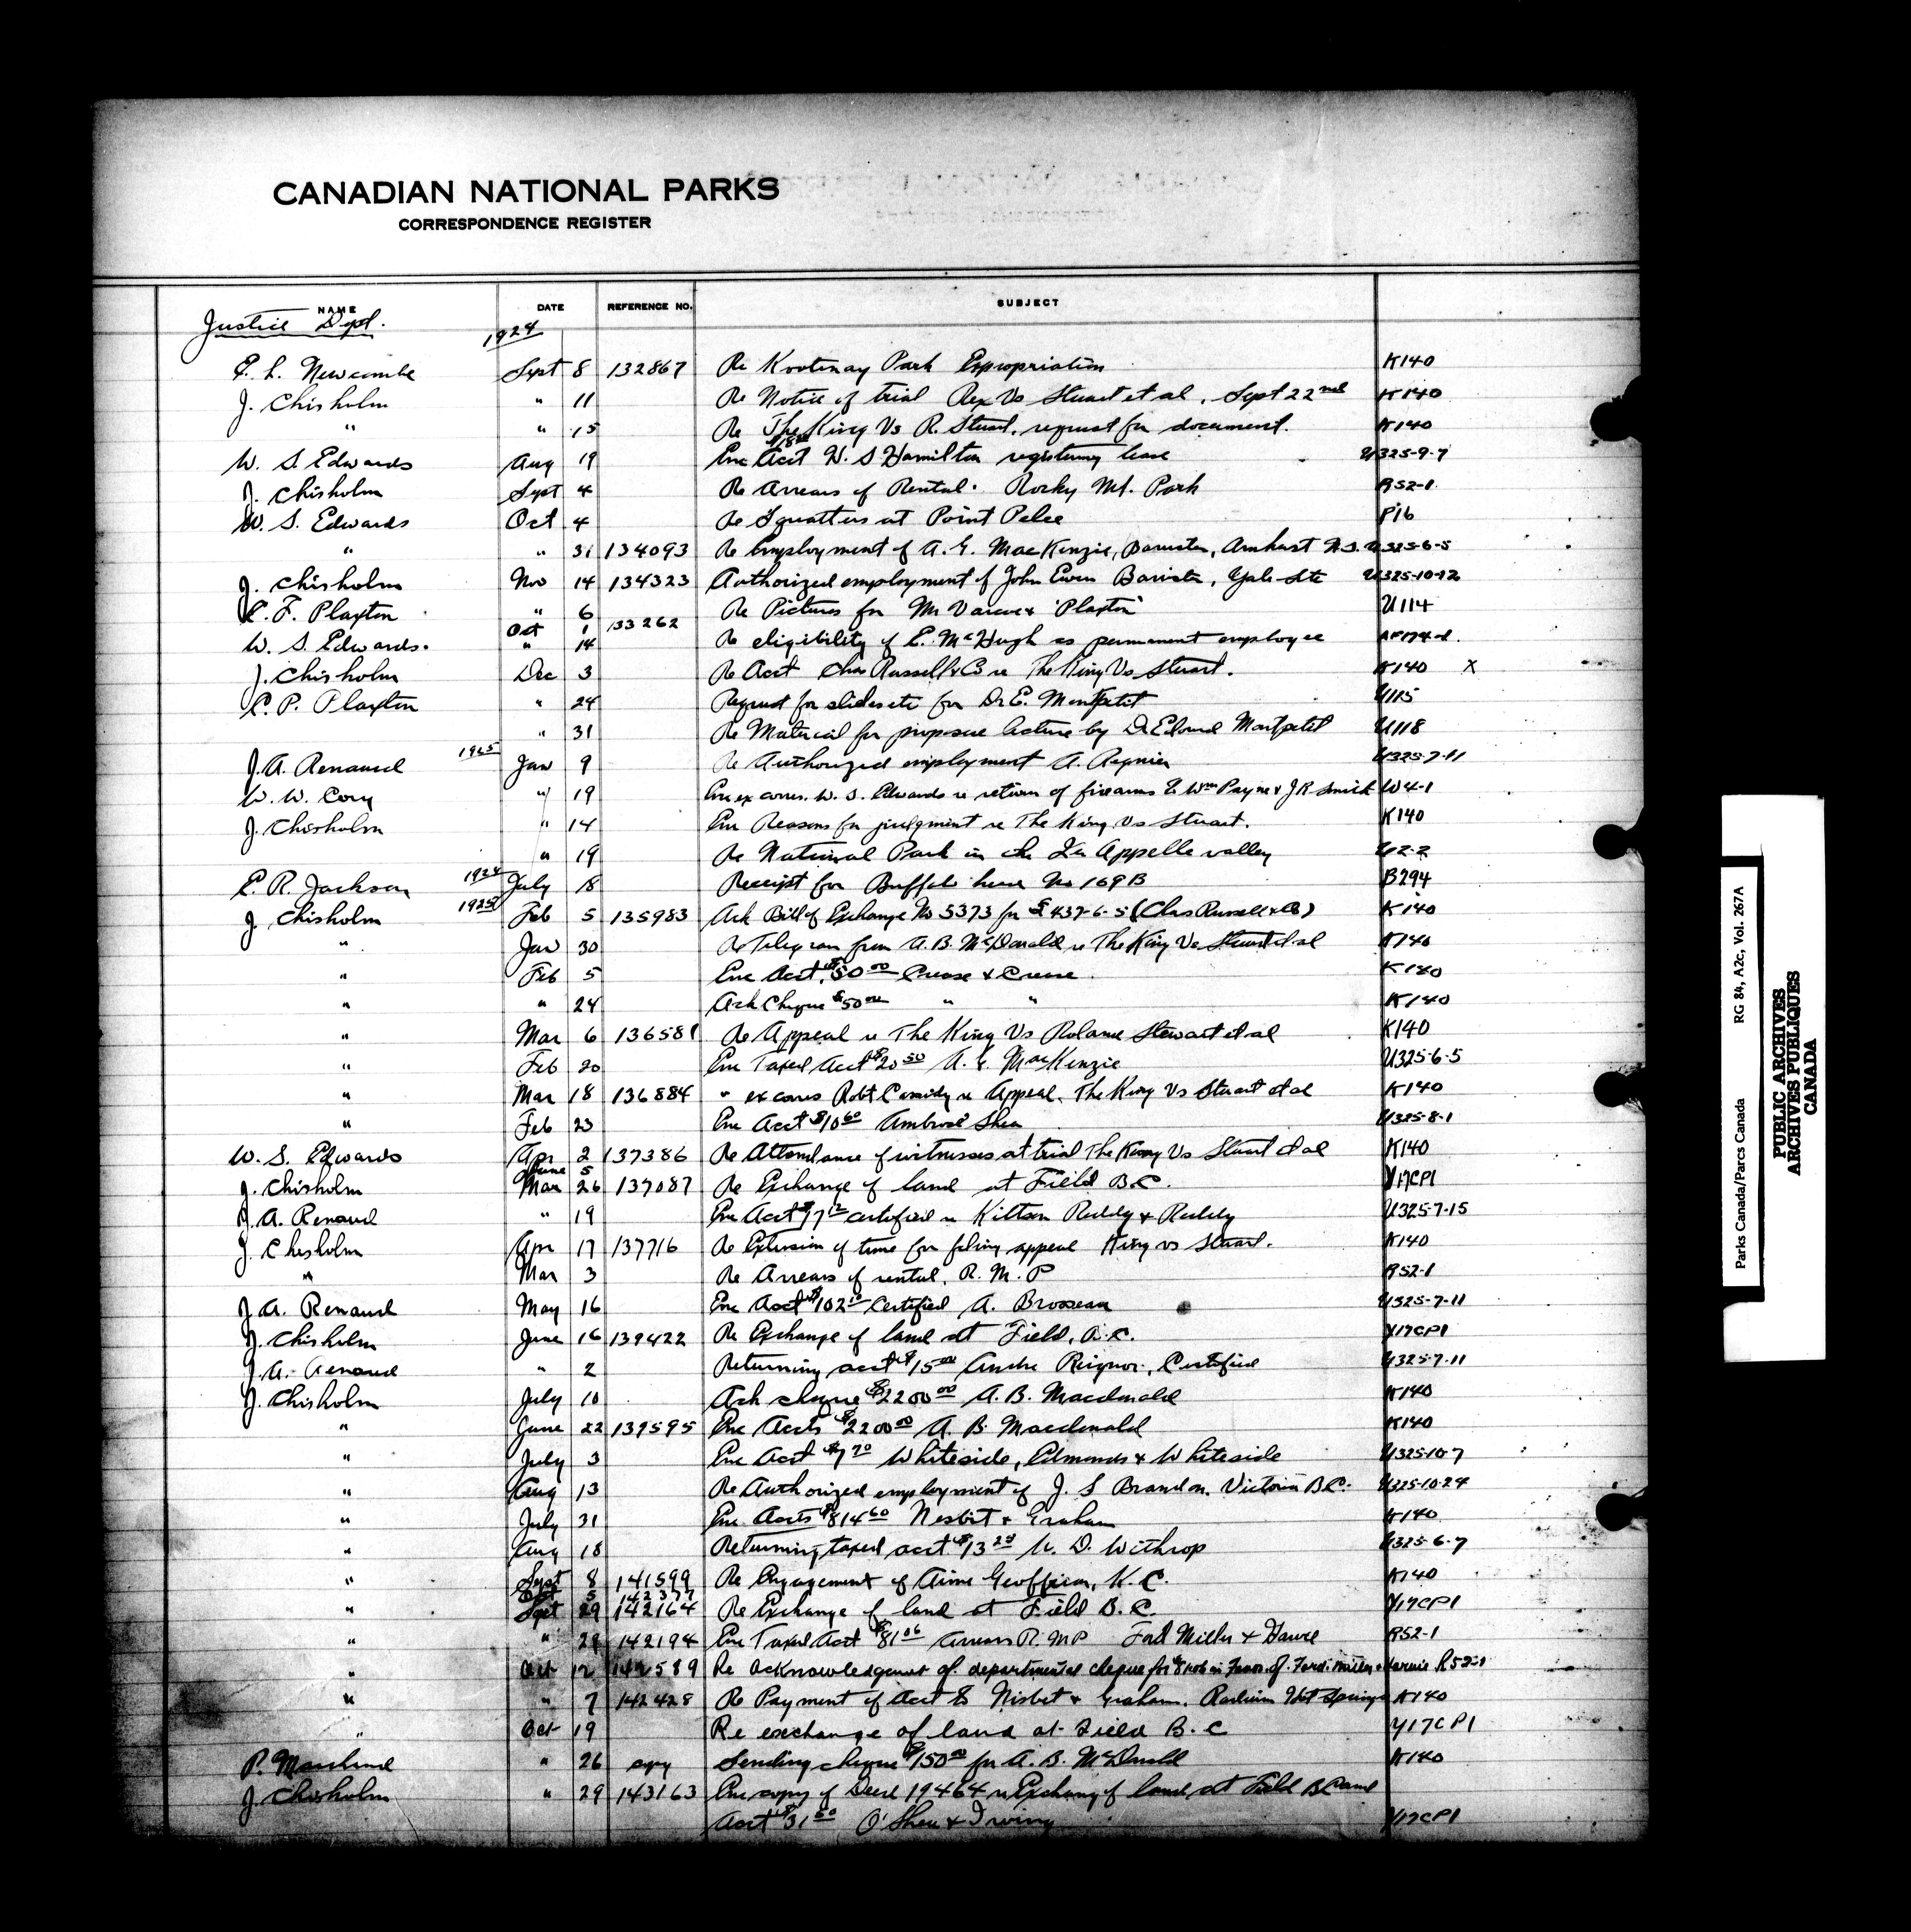 CANADIAN NATIONAL PARKS
CORRESPONDENCE REGISTER
NAME DATE REFERENCE NO. SUBJECT
Justice Dept. 1924
E. L. Newcombe Sept 8 132867 Re Kootenay Park Expropriation K140
J. Chisholm " 11 Re Notice of trial Rex Vs Stuart et al, Sept 22nd K140
" " 15 Re The King Vs R. Stuart, request for document. K140
W. S. Edwards Aug 19 Enc Acct H. S Hamilton registering lease U325-9-7
J. Chisholm Sept 4 Re Arrears of Rental. Rocky Mt. Park R52-1
W. S. Edwards Oct 4 Re Squatters at Point Pelee P16
" " 31 134093 Re Employment of A. G. MacKenzie, Barrister, Amherst N.S. U325-6-5
J. Chisholm Nov 14 134323 Authorized employment of John Ewen Barrister, Yale Site U325-10-12
C. F. Plaxton " 6 Re Pictures for Mr Varcoe & "Plaxton" U114
Oct 1 133262
W. S. Edwards. " 14 Re eligibility of E. McHugh as permanent employee
J. Chisholm Dec 3 Re Acct Chas Russell & Co re The King Vs Stuart. K140 X
C. P. Plaxton " 24 Request for slides etc for Dr E. Montpetit U115
" 31 Re Material for propose lecture by Dr Edouard Montpetit U118
J. A. Renaud 1925 Jan 9 Re Authorized employment A. Regnier U325-7-11
W. W. Cory " 19 Enc ex corres. W. S. Edwards re return of firearms to Wm Payne & J R Smith W4-1
J. Chisholm " 14 Enc Reasons for judgment re The King Vs Stuart. K140
" 19 Re National Park in the Qu Appelle valley U2-2
E. R. Jackson 1924 July 18 Receipt for Buffalo head No 169B B294
J Chisholm 1925 Feb 5 135983 Ack Bill of Exchange No 5373 for £437-6-5 (Chas Russell & Co) K140
" Jan 30 Re Telegram from A. B. McDonald re The King Vs Stuart et al K140
" Feb 5 Enc Acct. $50 00 Crease & Crease K140
" " 24 Ack Cheque $50 00 " " K140
" Mar 6 136581 Re Appeal re The King Vs Rolame Stewart et al K140
" Feb 20 Enc Taxed Acct $20 50 A. G. MacKenzie U325-6-5
" Mar 18 136884 " ex corres Robt Cassidy re Appeal, The King Vs Stuart et al K140
" Feb 23 Enc Acct $10 60 Ambrose Shea U325-8-1
W. S. Edwards Apr 2 137386 Re Attendance of witnesses at trial The King Vs Stuart et al K140
June 5
J. Chisholm Mar 26 137087 Re Exchange of land at Field B.C. Y17CP1
J. A. Renaud " 19 Enc Acct $17 12 certified re Kittson Reddy & Reddy U325-7-15
J. Chisholm Apr 17 137716 Re Extension of time for filing appeal King vs Stuart. K140
" Mar 3 Re Arrears of rental, R. M. P R52-1
J A. Renaud May 16 Enc Acct $102 10 Certified A. Brosseau U325-7-11
J. Chisholm June 16 139422 Re Exchange of land at Field, B.C. Y17CP1
J. A. Renaud " 2 Returning acct $15 00 Andre Reignor, Certified U325-7-11
J. Chisholm July 10 Ack cheque $2200 00 A. B. Macdonald K140
" June 22 139595 Enc Accts $2200 00 A. B. Macdonald K140
" July 3 Enc Acct $7 70 Whiteside, Edmonds & Whiteside U325-10-7
" Aug 13 Re Authorized employment of J. S Brandon, Victoria B.C. U325-10-24
" July 31 Enc Accts $814 60 Nesbit & Graham K140
" Aug 18 Returning taxed acct $13 20 W. D. Withrop U325-6-7
" Sept 8 141599 Re Engagement of Aime Geoffrion, K.C. K140
Oct 5 142377
" Sept 29 142164 Re Exchange of land at Field B.C. Y17CP1
" " 29 142194 Enc Taxed Acct $81 06 Arrears R. M P Ford Miller & Harvie R52-1
" Oct 12 142589 Re acknowledgement of departmental cheque for $81.06 in Favor of Ford. Miller & Harvie R52-1
" " 7 142428 Re Payment of Acct to Nisbet & Graham. Radium Hot Springs K140
" Oct 19 Re exchange of land at Field B.C Y17CP1
P. Marchand " 26 copy Sending cheque $150 00 for A. B. McDonald K140
J. Chisholm " 29 143163 Enc copy of Deed 19464 re Exchange of land at Field B C and
Acct $31 50 O'Shea & Irving Y17CP1
Parks Canada/Parcs Canada RG 84, A2c, Vol. 267A
PUBLIC ARCHIVES
ARCHIVES PUBLIQUES
CANADA